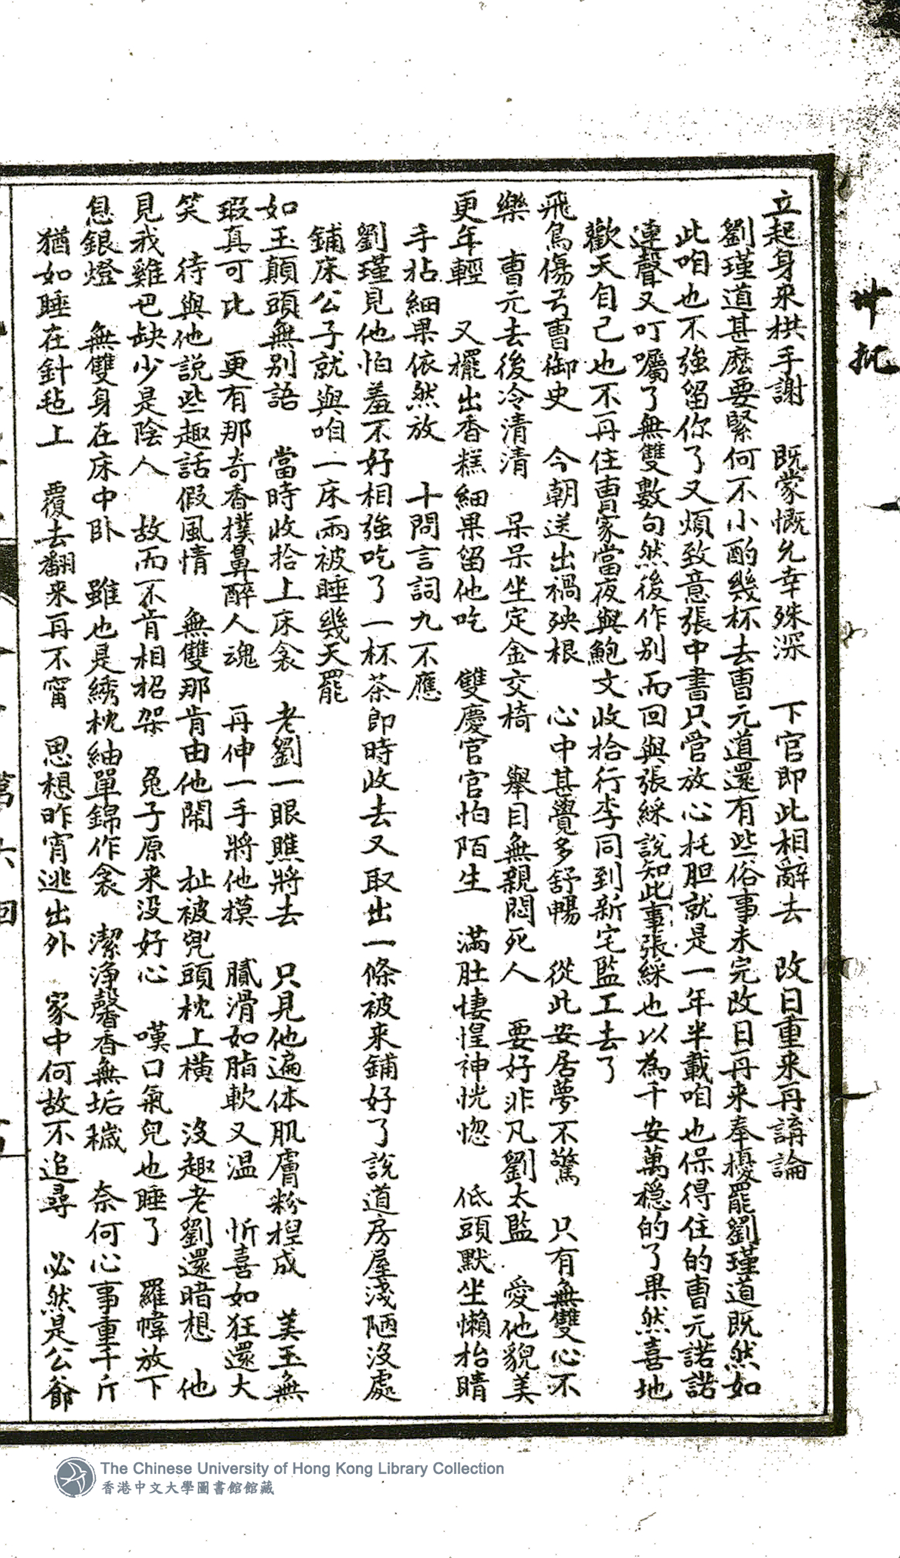 立起身來拱手謝　既蒙慨允幸殊深　下官即此相辭去　改日重來再講論
劉瑾道甚麽要緊何不小酌幾杯去曹元道還有些俗事未完改日再來奉擾罷劉瑾道既然如
此咱也不強留你了又煩致意張中書只管放心托胆就是一年半載咱也保得住的曹元諾諾
連聲又叮囑了無雙數句然後作别而回與張綵說知此事張綵也以為千安萬穩的了果然喜地
歡天自己也不再住曹家當夜與鮑文收拾行李同到新宅監工去了
飛鳥傷弓曹御史　今朝送出禍殃根　心中甚覺多舒暢　從此安居夢不驚　只有無雙心不
樂　曹元去後冷清清　呆呆坐定金交椅　舉目無親悶死人　要好非凡劉太監　愛他貌美
更年輕　又擺出香糕細果留他吃　雙慶官官怕陌生　滿肚悽惶神恍惚　低頭默坐懶抬睛
手拈細果依然放　十問言詞九不應
劉瑾見他怕羞不好相強吃了一杯茶即時收去又取出一條被來鋪好了說道房屋淺陋沒處
鋪床公子就與咱一床兩被睡幾天罷
如玉顛頭無别語　當時收拾上床衾　老劉一眼瞧將去　只見他遍体肌膚粉捏成　美玉無
瑕真可比　更有那奇香撲鼻醉人魂　再伸一手將他摸　膩滑如脂軟又温　忻喜如狂還大
笑　待與他說些趣話假風情　無雙那肯由他鬧　扯被兜頭枕上横　沒趣老劉還暗想　他
見我雞巴缺少是陰人　故而不肯相招架　兔子原來没好心　嘆口氣兒也睡了　羅幃放下
息銀燈　無雙身在床中卧　雖也是綉枕紬單錦作衾　潔淨馨香無垢穢　奈何心事重千斤
猶如睡在針毡上　覆去翻來再不甯　思想昨宵逃出外　家中何故不追尋　必然是公爺
第六回
The Chinese University of Hong Kong Library Collection
香港中文大學圖書館館藏